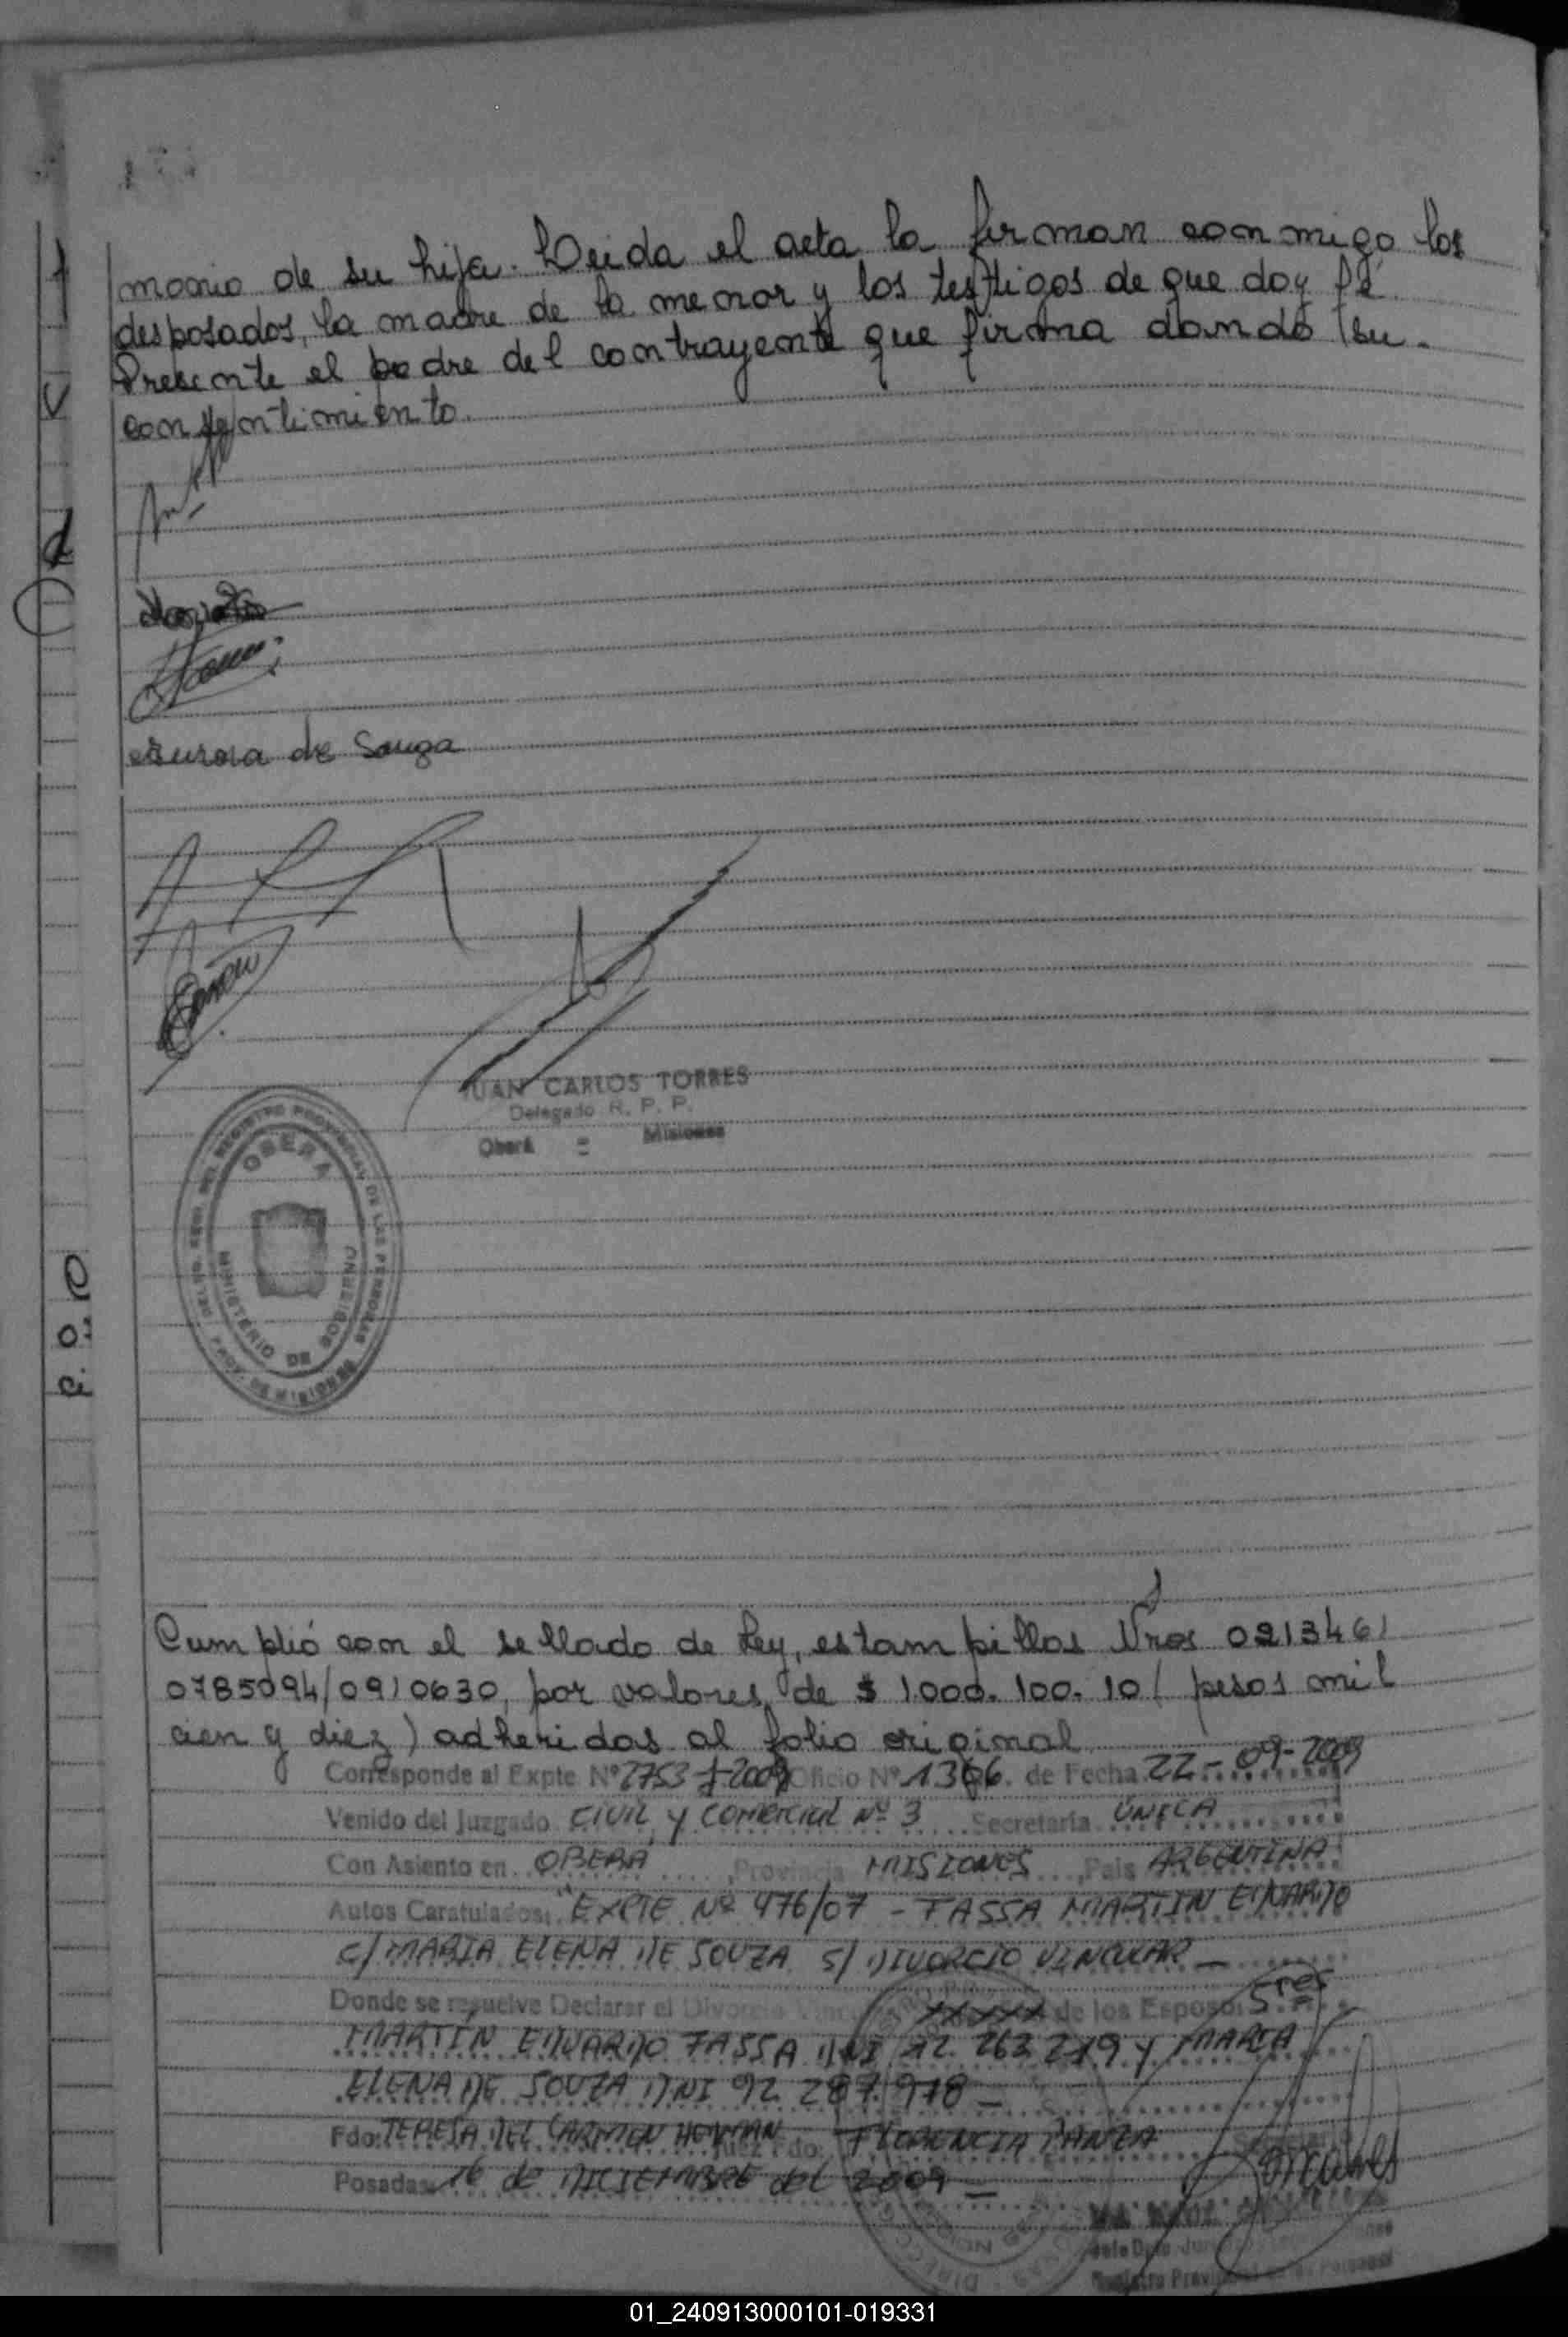 monio de su hija. Leida el acta la firman conmigo los
desposados, la madre de la menor y los testigos de que doy fé.
Presente el padre del contrayente que firma dando su
consentimiento.
de Souza
JUAN CARLOS TORRES
Delegado R. P. P.
Oberá - Misiones
DEL REGISTRO PROVINCIAL DE LAS PERSONAS
OBERA
MINISTERIO DE GOBIERNO
PROV. DE MISIONES
Cumplió con el sellado de Ley, estampillas Nros 0213461
0785094/0910630, por valores de $ 1000. 100. 10 ( pesos mil
cien y diez ) adheridas al folio original
Corresponde al Expte Nº 2753 -2009 Oficio Nº 1366. de Fecha 22-09-2009
Venido del Juzgado CIVIL Y COMERCIAL Nº 3 Secretaría UNICA
Con Asiento en OBERA, Provincia MISIONES, Pais ARGENTINA
Autos Caratulados: "EXPTE Nº 476/07 - TASSA MARTIN EDUARDO
C/ MARIA ELENA DE SOUZA S/ DIVORCIO VINCULAR -
Donde se resuelve Declarar el Divorcio XXXXX de los Esposos Sres
MARTIN EDUARDO TASSA DNI 263 219 Y MARIA
ELENA DE SOUZA DNI 92 287 978 -
Fdo: TERESA DEL CARMEN Juez Fdo: FLORENCIA PANZA Secretaria
Posadas 16 de DICIEMBRE del 2009 -
01_240913000101-019331